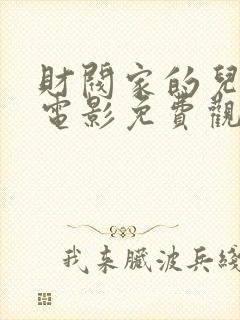 財閥家的兒
電影免費觀
我来臓波兵綫